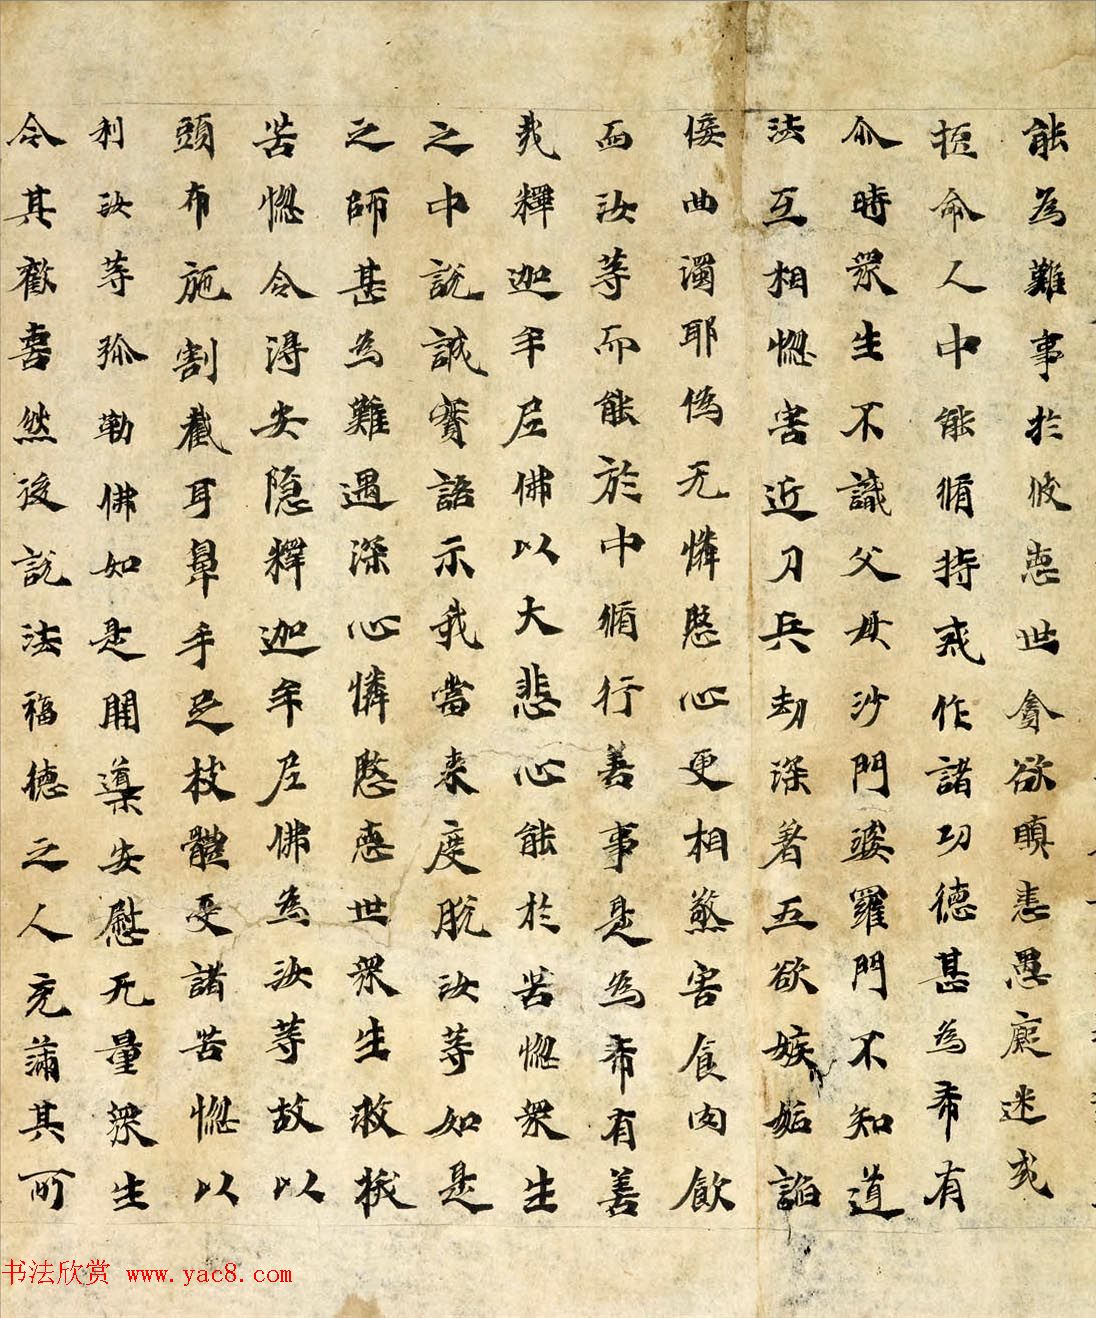 能為難事於彼惡世貪欲瞋恚愚癡迷或
短命人中能脩持戒作諸功德甚為希有
尒時眾生不識父母沙門婆羅門不知道
法互相惱害近刀兵劫深著五欲嫉妬諂
佞曲濁耶偽无憐愍心更相煞害食肉飲
而汝等而能於中脩行善事是為希有善
我釋迦牟尼佛以大悲心能於苦惱眾生
之中說誠實語示我當来度脫汝等如是
之師甚為難遇深心憐愍惡世眾生救拔
苦惱令得安隱釋迦牟尼佛為汝等故以
頭布施割截耳鼻手足枝體受諸苦惱以
利汝等弥勒佛如是開導安慰无量眾生
令其歡喜然後說法福德之人充滿其所
书法欣赏 www.yac8.com